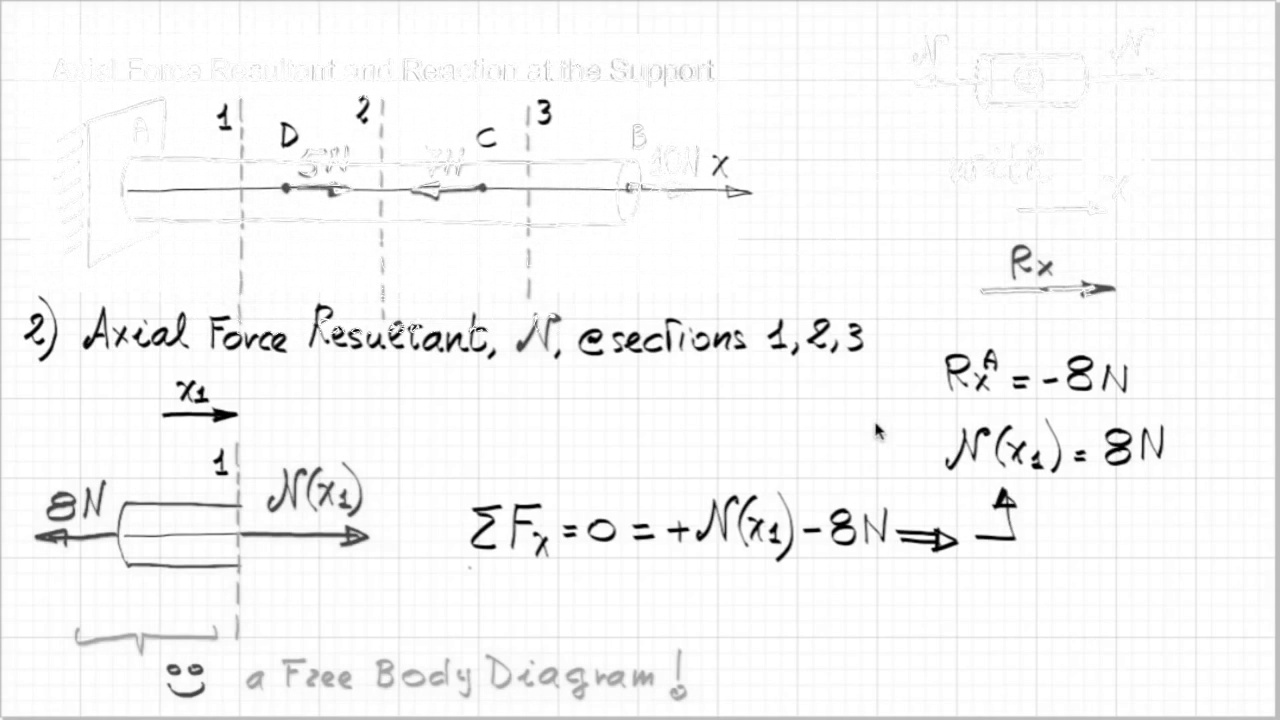 Axial Force Resultant and Reaction at the Support
N N
1 2 3
A D C B
5N 7N 10N x
with x
Rx
2) Axial Force Resultant, N, @ sections 1, 2, 3
x1
RxA = -8N
1
N(x1) = 8N
8N N(x1)
ΣFx = 0 = +N(x1) - 8N ⇒
a Free Body Diagram!